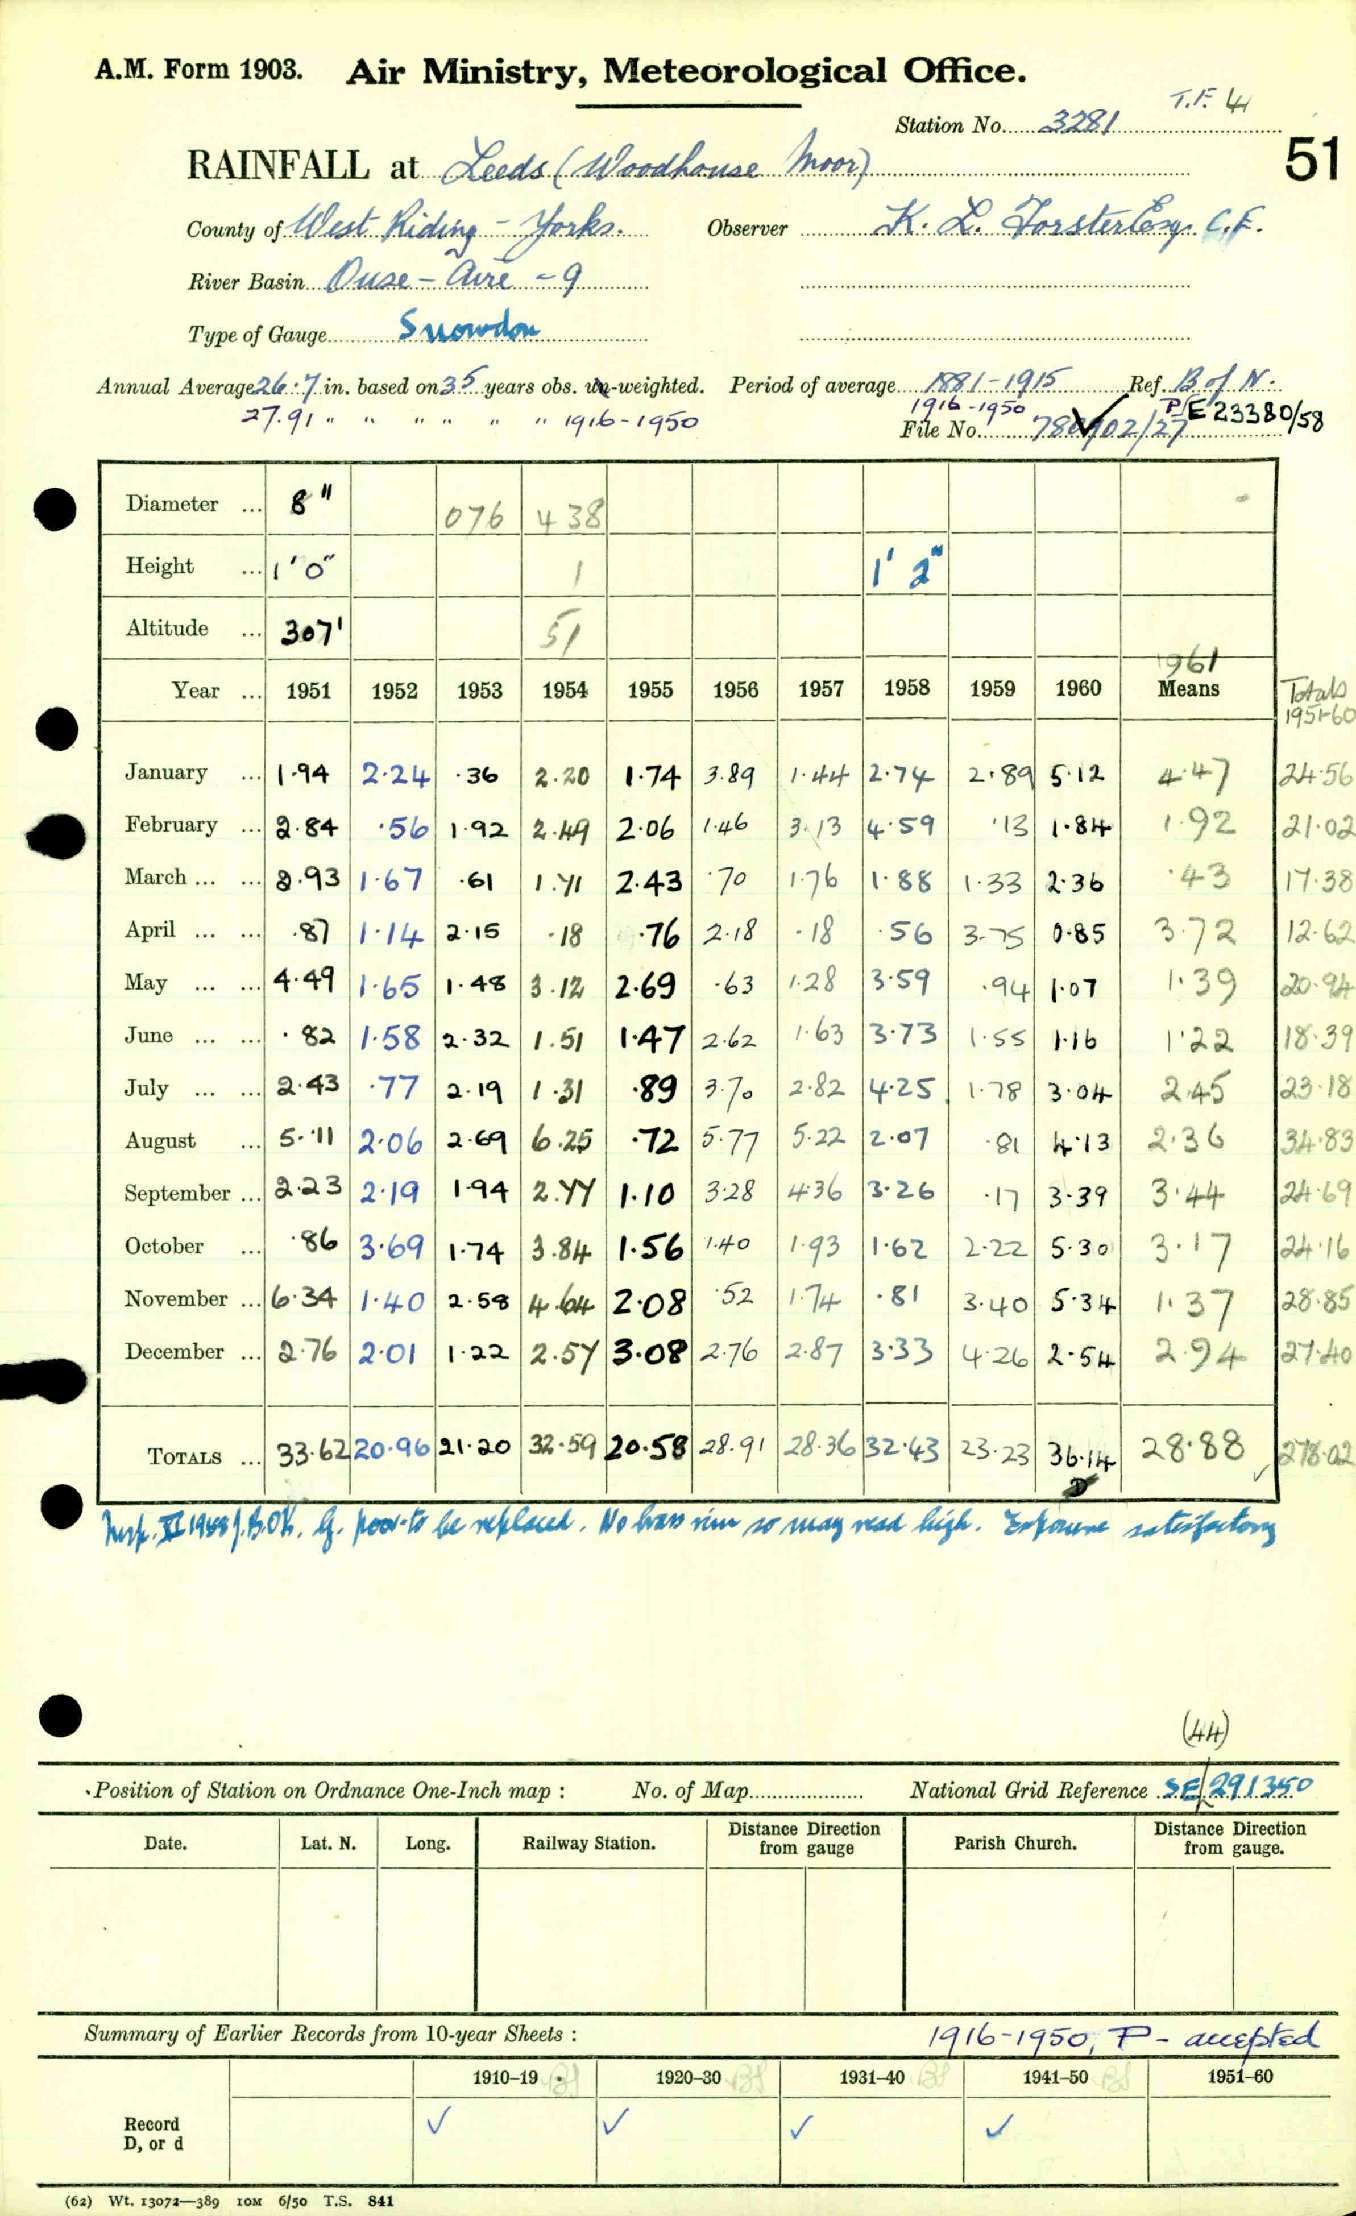 A.M. Form 1903. Air Ministry, Meteorological Office.
T.F. 44
Station No. 3281
51
RAINFALL at Leeds (Woodhouse Moor)
County of West Riding - Yorks. Observer K. L. Forster Esq. C.E.
River Basin Ouse - Aire - 9
Type of Gauge Snowdon
Annual Average 26.7 in. based on 35 years obs. un-weighted. Period of average 1881-1915 Ref. B of N.
27.91 " " " " " " 1916-1950 1916-1950
File No. 780902/27 PE 23380/58
Diameter ... 8" 076 438
Height ... 1' 0" 1 1' 2"
Altitude ... 307' 51
1961
Year ... 1951 1952 1953 1954 1955 1956 1957 1958 1959 1960 Means Totals 1951-60
January ... 1.94 2.24 .36 2.20 1.74 3.89 1.44 2.74 2.89 5.12 4.47 24.56
February ... 2.84 .56 1.92 2.49 2.06 1.46 3.13 4.59 .13 1.84 1.92 21.02
March ... ... 2.93 1.67 .61 1.71 2.43 .70 1.76 1.88 1.33 2.36 .43 17.38
April ... ... .87 1.14 2.15 .18 .76 2.18 .18 .56 3.75 0.85 3.72 12.62
May ... ... 4.49 1.65 1.48 3.12 2.69 .63 1.28 3.59 .94 1.07 1.39 20.94
June ... ... .82 1.58 2.32 1.51 1.47 2.62 1.63 3.73 1.55 1.16 1.22 18.39
July ... ... 2.43 .77 2.19 1.31 .89 3.70 2.82 4.25 1.78 3.04 2.45 23.18
August ... 5.11 2.06 2.69 6.25 .72 5.77 5.22 2.07 .81 4.13 2.36 34.83
September ... 2.23 2.19 1.94 2.77 1.10 3.28 4.36 3.26 .17 3.39 3.44 24.69
October ... .86 3.69 1.74 3.84 1.56 1.40 1.93 1.62 2.22 5.30 3.17 24.16
November ... 6.34 1.40 2.58 4.64 2.08 .52 1.74 .81 3.40 5.34 1.37 28.85
December ... 2.76 2.01 1.22 2.57 3.08 2.76 2.87 3.33 4.26 2.54 2.94 27.40
TOTALS ... 33.62 20.96 21.20 32.59 20.58 28.91 28.36 32.43 23.23 36.14 28.88 278.02
D
Insp. G. poor to be replaced. No brass rim so may read high. Exposure satisfactory
(44)
Position of Station on Ordnance One-Inch map : No. of Map National Grid Reference SE/291350
Date. Lat. N. Long. Railway Station. Distance Direction from gauge Parish Church. Distance Direction from gauge.
Summary of Earlier Records from 10-year Sheets : 1916-1950, P - accepted
1910–19 1920–30 1931–40 1941–50 1951–60
Record D, or d ✓ ✓ ✓ ✓
(62) Wt. 13072—389 10M 6/50 T.S. 841